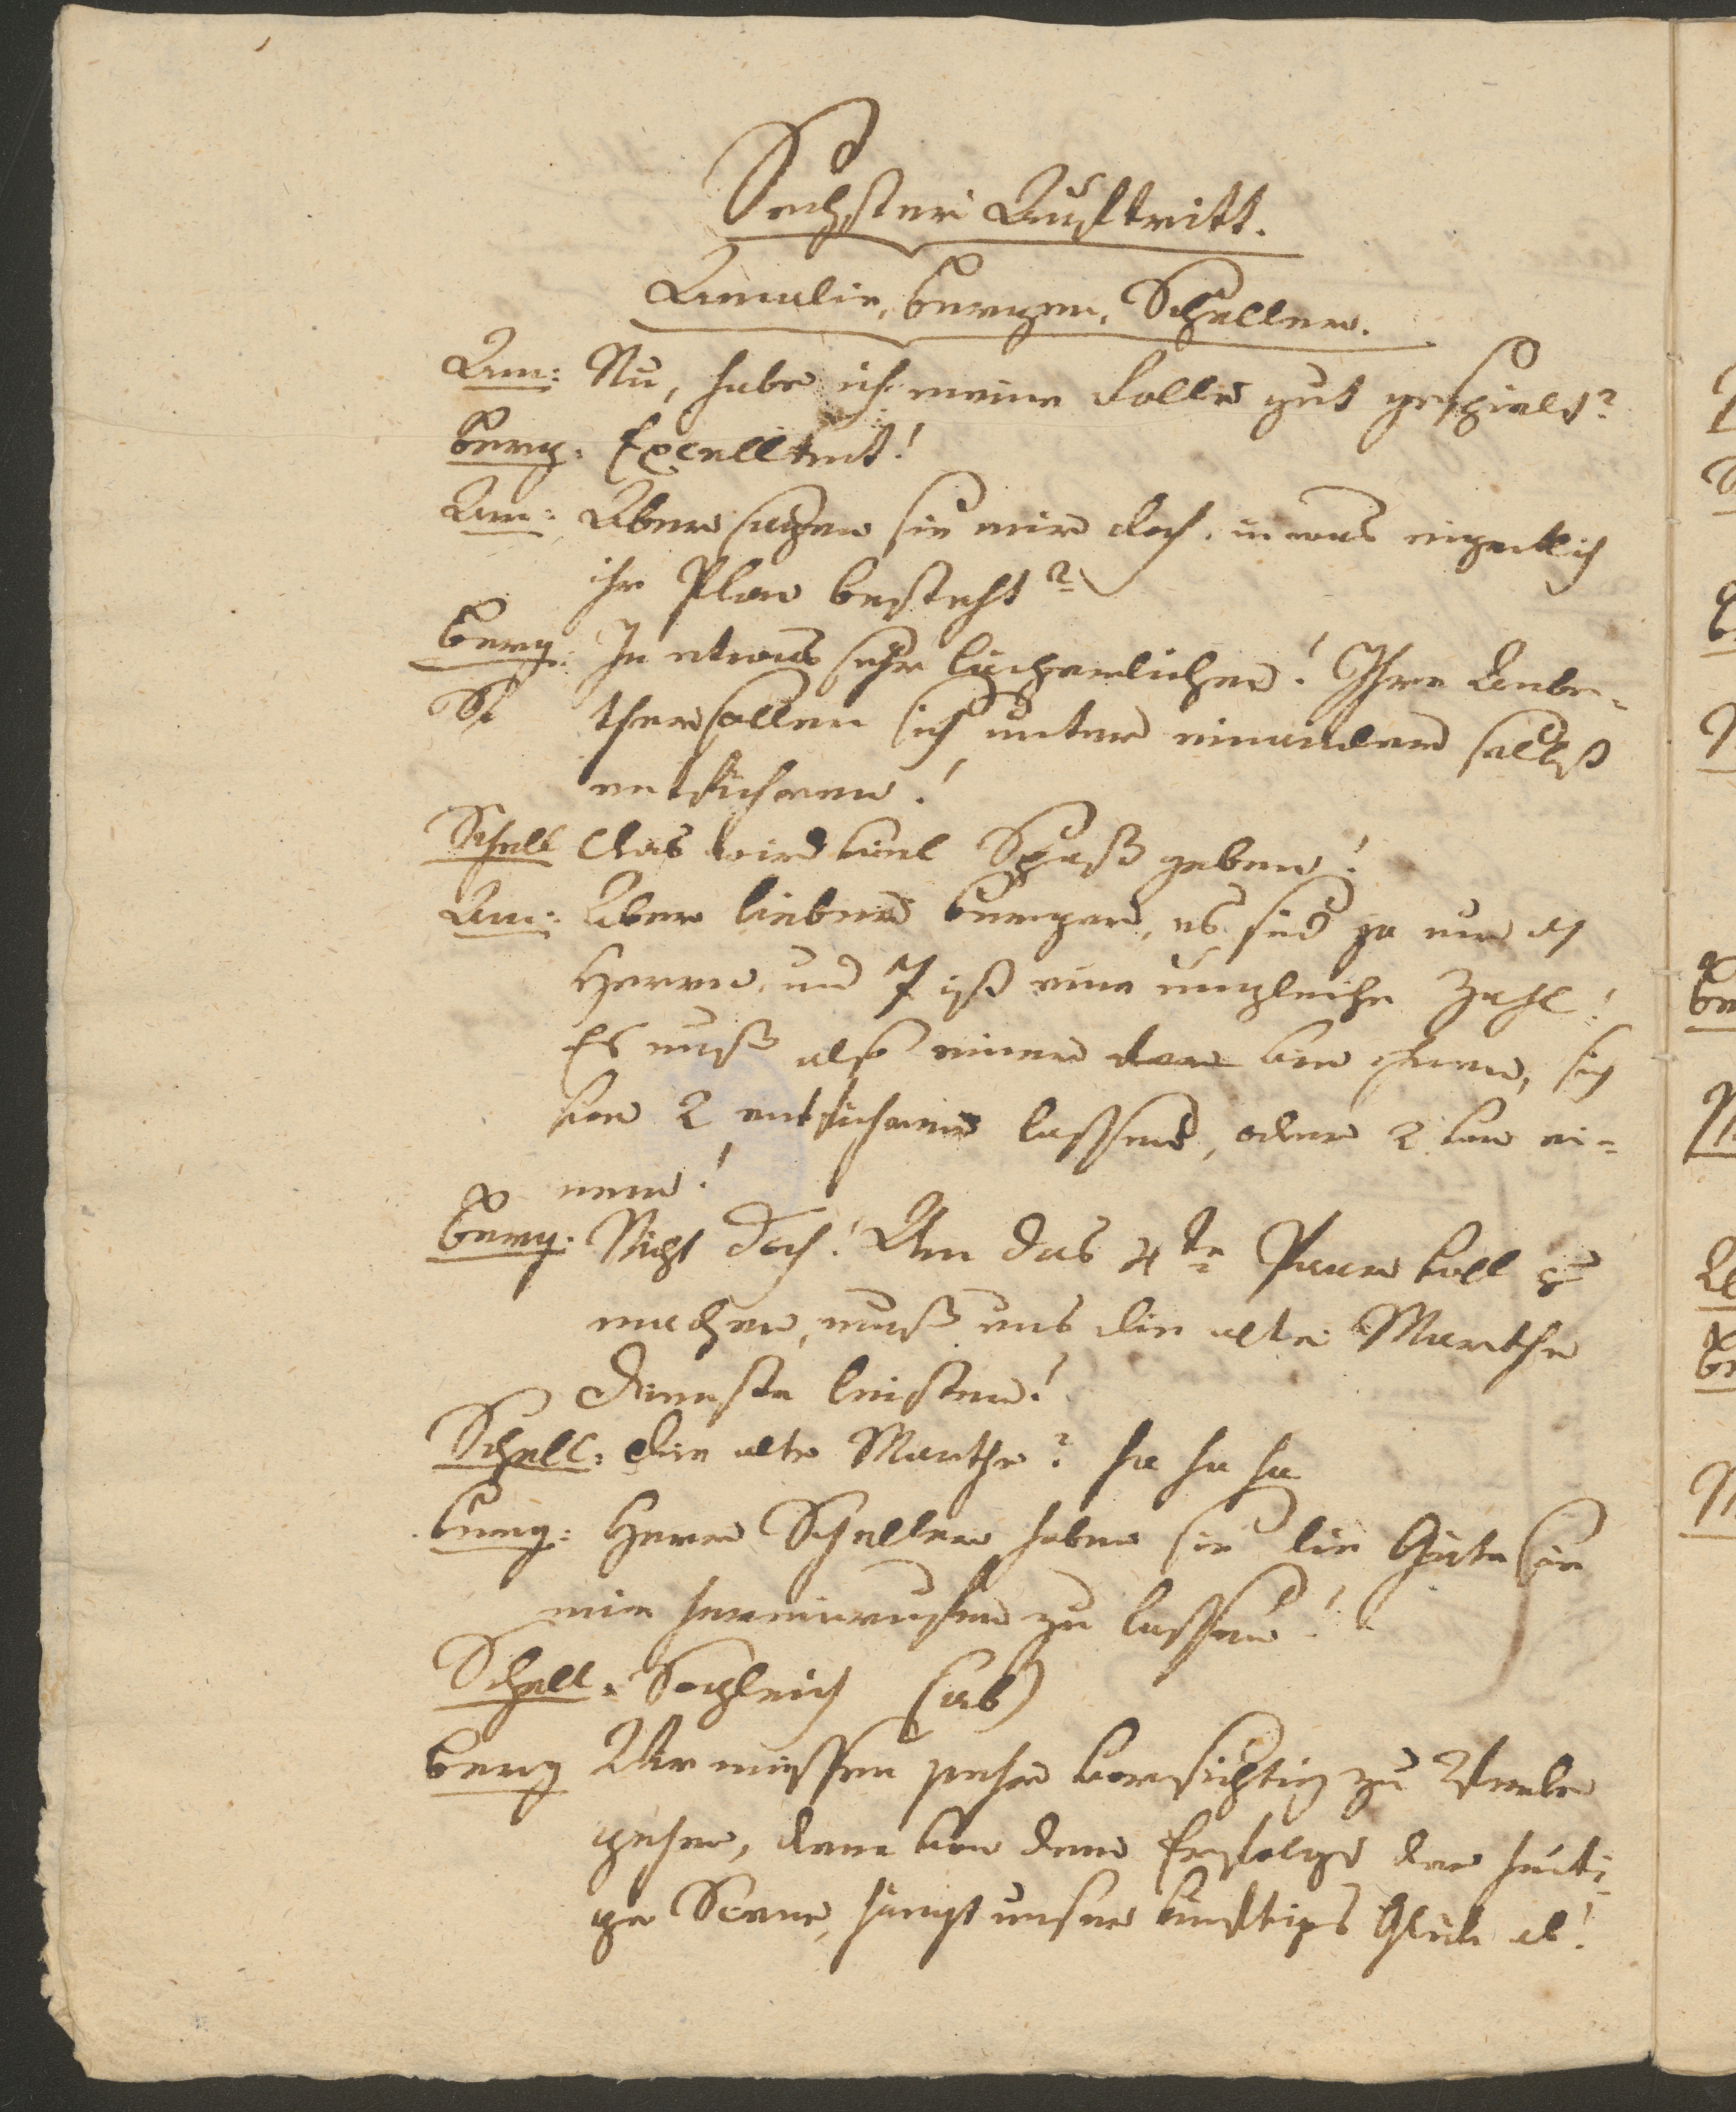 Sechster Auftritt.
Amalie, Berger, Scheller.
Am: Nu, habe ich meine Rolle gut gespielt?
Berg: Excellent!
Am: Aber sagen sie mir doch, in was eigentlich
ihr Plan besteht?
Berg: In etwas sehr lächerlichen! Ihre Anbe-
ther sollen sich unter einander selbst
entführen!
Schell Das wird viel Spaß geben!
Am: Aber lieber Berger, es sind ja nur 7
Herrn, und 7 ist eine ungleiche Zahl!
Es muß also einer der von ihnen, sich
von 2 entführen lassen, oder 2 von ei-
nem!
Berg: Nicht doch! Um das 4te Paar voll zu
machen, muß uns die alte Marthe
Dienste leisten!
Schell: Die alte Marthe? ha ha ha
Berg: Herr Scheller haben sie die Güte sie
mir hereinrufen zu lassen!
Schell: Sogleich (ab)
Berg Wir müssen sehr vorsichtig zu Werke
gehen, denn von dem Erfolge der heuti-
gen Scene, hängt unser künftiges Glük ab!